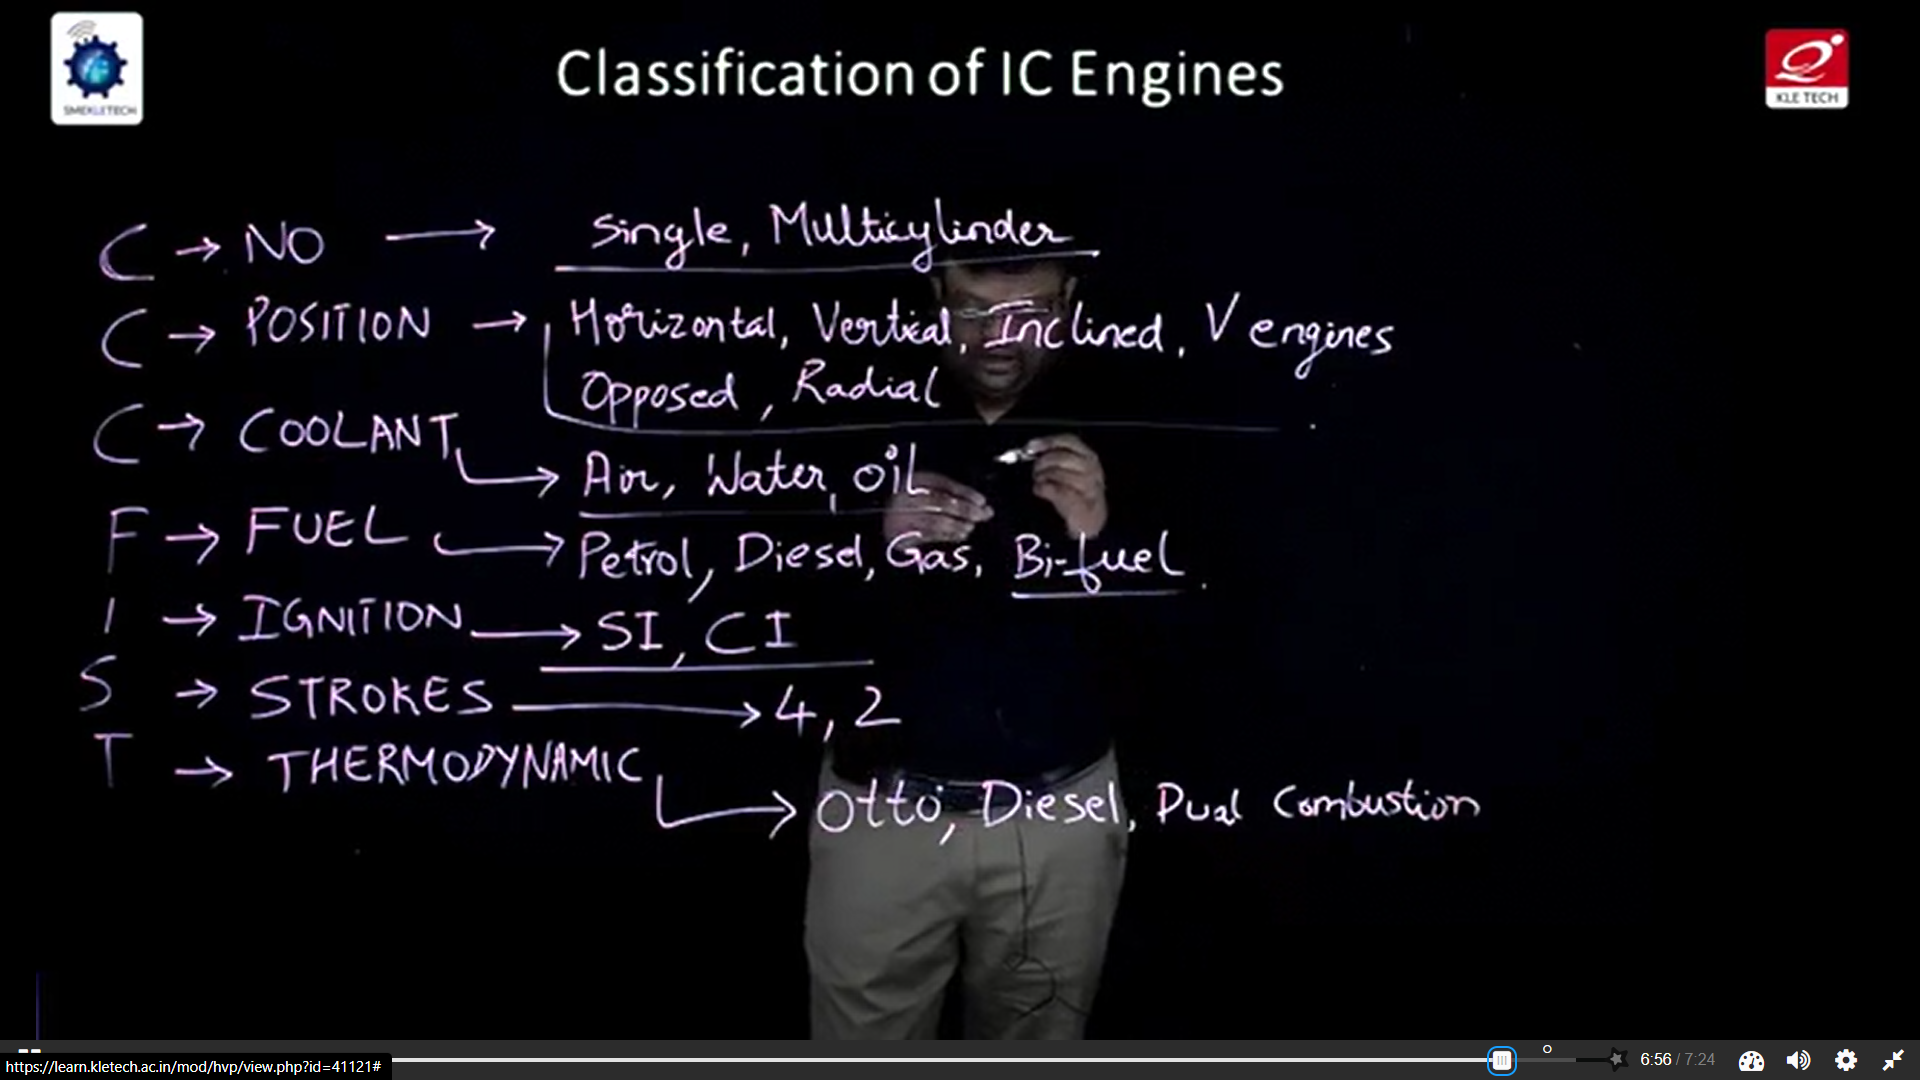 SMEKLETECH
Classification of IC Engines
KLE TECH
C → NO → Single, Multicylinder
C → POSITION → Horizontal, Vertical, Inclined, V engines
Opposed, Radial
C → COOLANT → Air, Water, Oil
F → FUEL → Petrol, Diesel, Gas, Bi-fuel
I → IGNITION → SI, CI
S → STROKES → 4, 2
T → THERMODYNAMIC
→ Otto, Diesel, Dual Combustion
https://learn.kletech.ac.in/mod/hvp/view.php?id=41121#
6:56 / 7:24